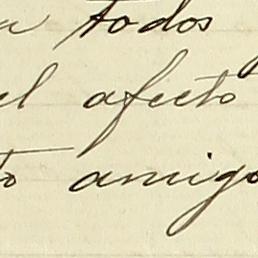 a todos
el afecto
to amigo